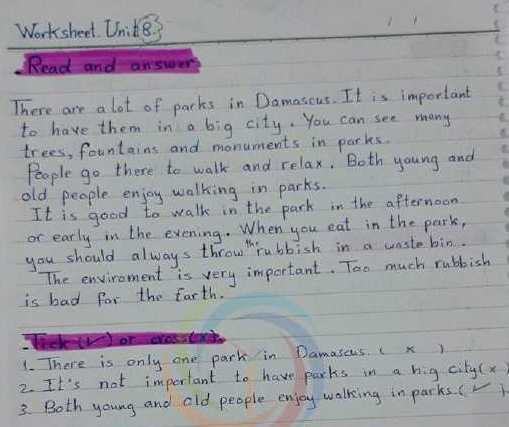 Worksheet. Unit 8
. Read and answer
There are a lot of parks in Damascus. It is important
to have them in a big city. You can see many
trees, fountains and monuments in parks.
People go there to walk and relax. Both young and
old people enjoy walking in parks.
It is good to walk in the park in the afternoon
or early in the evening. When you eat in the park,
you should always throw the rubbish in a waste bin.
The enviroment is very important. Too much rubbish
is bad for the Earth.
- Tick (✓) or cross (x).
1- There is only one park in Damascus. ( x )
2- It's not important to have parks in a big city (x)
3- Both young and old people enjoy walking in parks. ( ✓ )